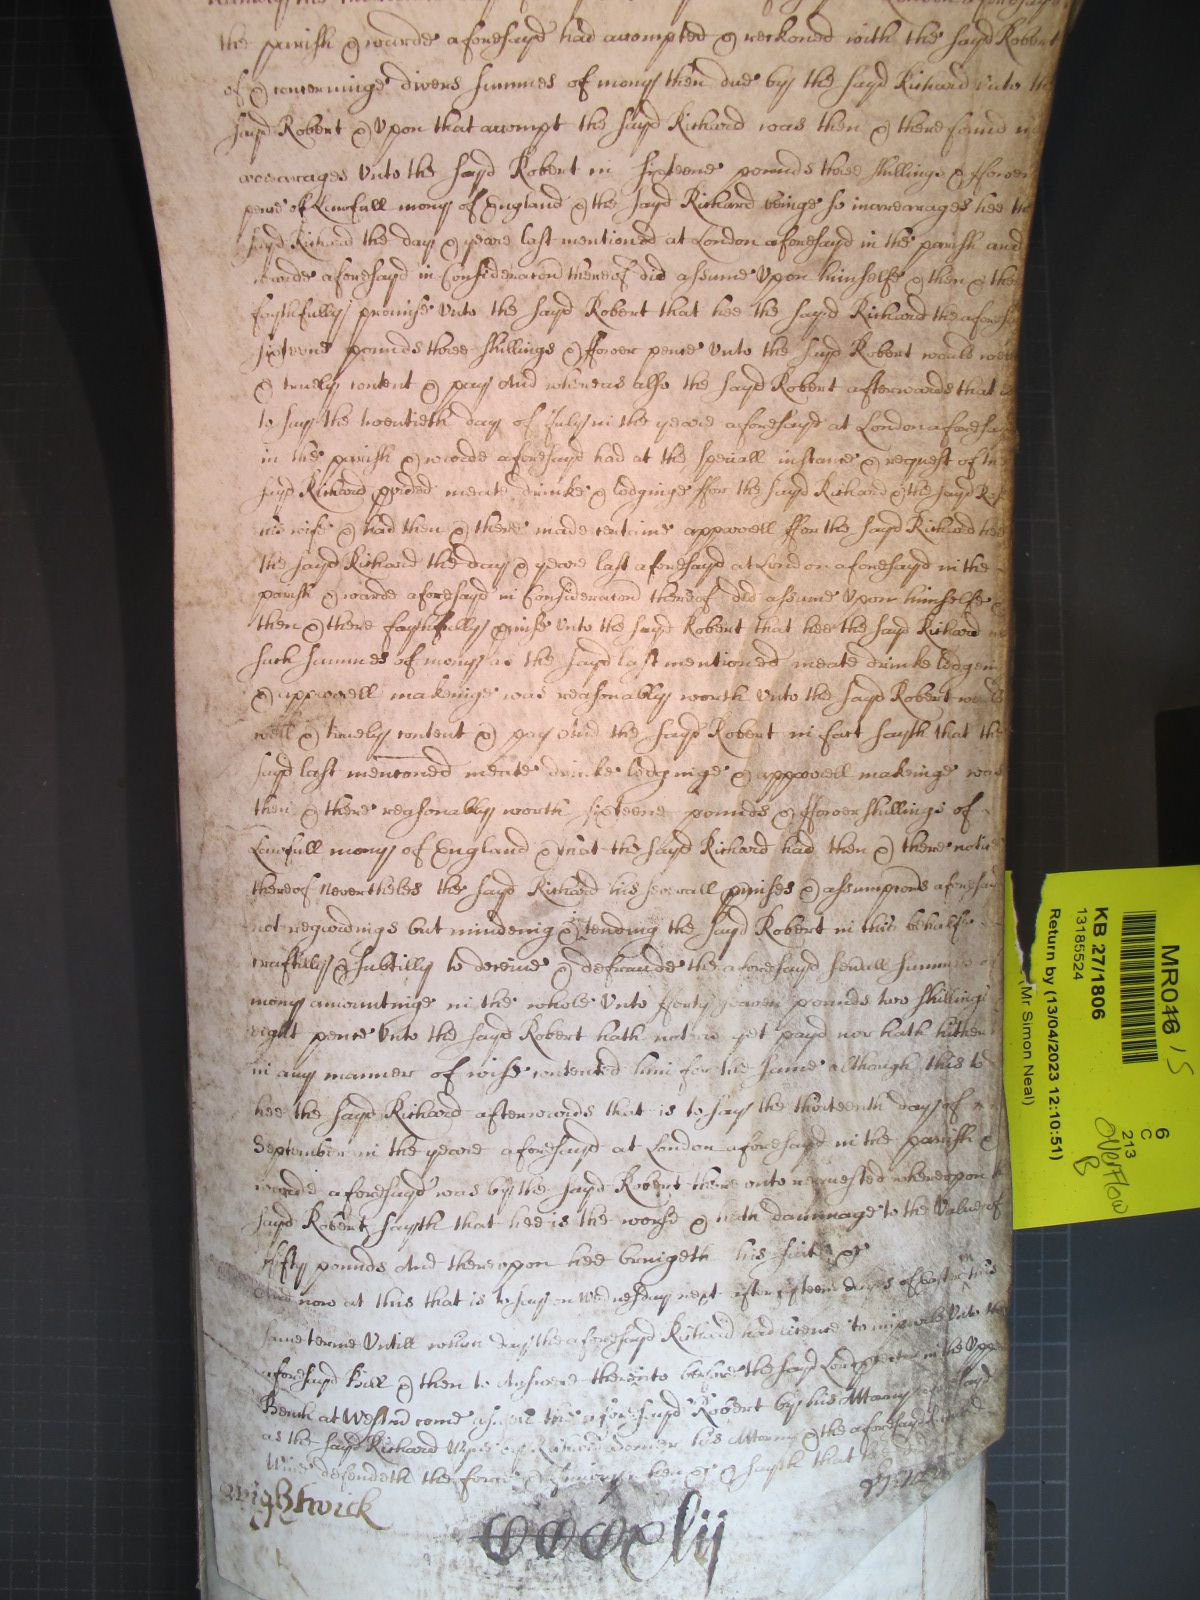 the parish & warde aforesayd had accompted & reckoned with the sayd Robert
of & concerninge divers summes of mony then due by the sayd Richard unto the
sayd Robert & Upon that accompt the sayd Richard was then & there found in
arrearages Unto the sayd Robert in sixteene pounds three shillings & ffower
pence of Lawfull mony of England & the sayd Richard beinge so in arrearages hee the
sayd Richard the day & yeare last mentioned at London aforesayd in the parish and
warde aforesayd in Consideracon thereof did assume Upon himselfe & then & there
faythfully promise Unto the sayd Robert that hee the sayd Richard the aforesayd
sixteene pounds three shillings & ffower pence Unto the sayd Robert would well
& truely content & pay And whereas also the sayd Robert afterwards that is
to say the twentieth day of July in the yeare aforesayd at London aforesayd
in the parish & warde aforesayd had at the speciall instance & request of the
sayd Richard pvided meate drinke & lodginge ffor the sayd Richard & the sayd
his wife & had then & there made certaine apparell ffor the sayd Richard hee
the sayd Richard the day & yeare last aforesayd at London aforesayd in the
parish & warde aforesayd in Consideracon thereof did assume Upon himselfe &
then & there faythfully pmise Unto the sayd Robert that hee the sayd Richard
such summes of mony as the sayd last mentioned meate drinke lodgeing
& apparell makeinge was reasonably worth Unto the sayd Robert would
well & timely content & pay And the sayd Robert in fact sayth that the
sayd last mencioned meate drinke lodginge & apparell makeinge was
then & there reasonably worth sixteene pounds & ffower shillings of
Lawfull mony of England & that the sayd Richard had then & there notice
thereof neverthelesse the sayd Richard his severall pmises & assumpcons aforesayd
not regardinge but mindeing & intending the sayd Robert in this behalfe
craftilly & subtilly to deceive & defraude the aforesayd severall summes of
mony amountinge in the whole Unto fforty seaven pounds two shillings
eight pence Unto the sayd Robert hath not as yet payd nor hath hitherto
in any manner of wise contented him for the same although this to
hee the sayd Richard afterwards that is to say the thirteenth day of
September in the yeare aforesayd at London aforesayd in the parish &
warde aforesayd was by the sayd Robert there unto requested whereupon the
sayd Robert sayth that hee is the worse & hath dammage to the Value of
fifty pounds And thereupon hee bringeth his suite &c
And now at this that is to say on Wednesday next after fifteene dayes of Easter in this
same terme Untill which day the aforesayd Richard had licence to imparle Unto the
aforesayd Bill & then to Answere thereunto before the sayd Lord protector in the Upper
Bench at Westmr come aswell the aforesayd Robert by his Attorny aforesayd
as the sayd Richard Wyne by his Attorny & the aforesayd Richard
Wine defendeth the force & iniury when &c & sayth that hee
Wightwick
CCCCxlij
MR046 / S
KB 27/1806
13185524
Return by (13/04/2023 12:10:51)
(Mr Simon Neal)
6
C
213
Overflow
B